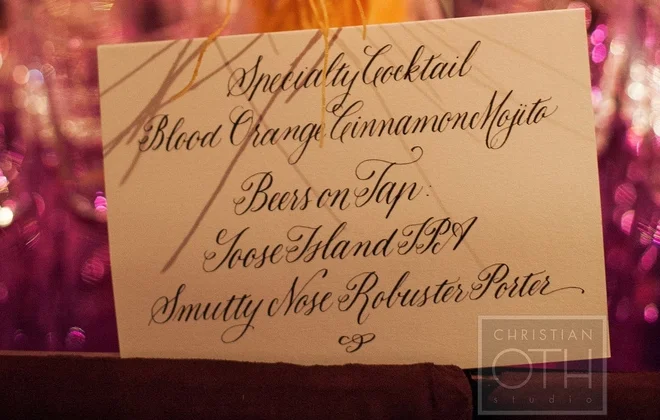 Specialty Cocktail
Blood Orange Cinnamone Mojito
Beers on Tap:
Goose Island IPA
Smutty Nose Robuster Porter
CHRISTIAN
OTH
studio